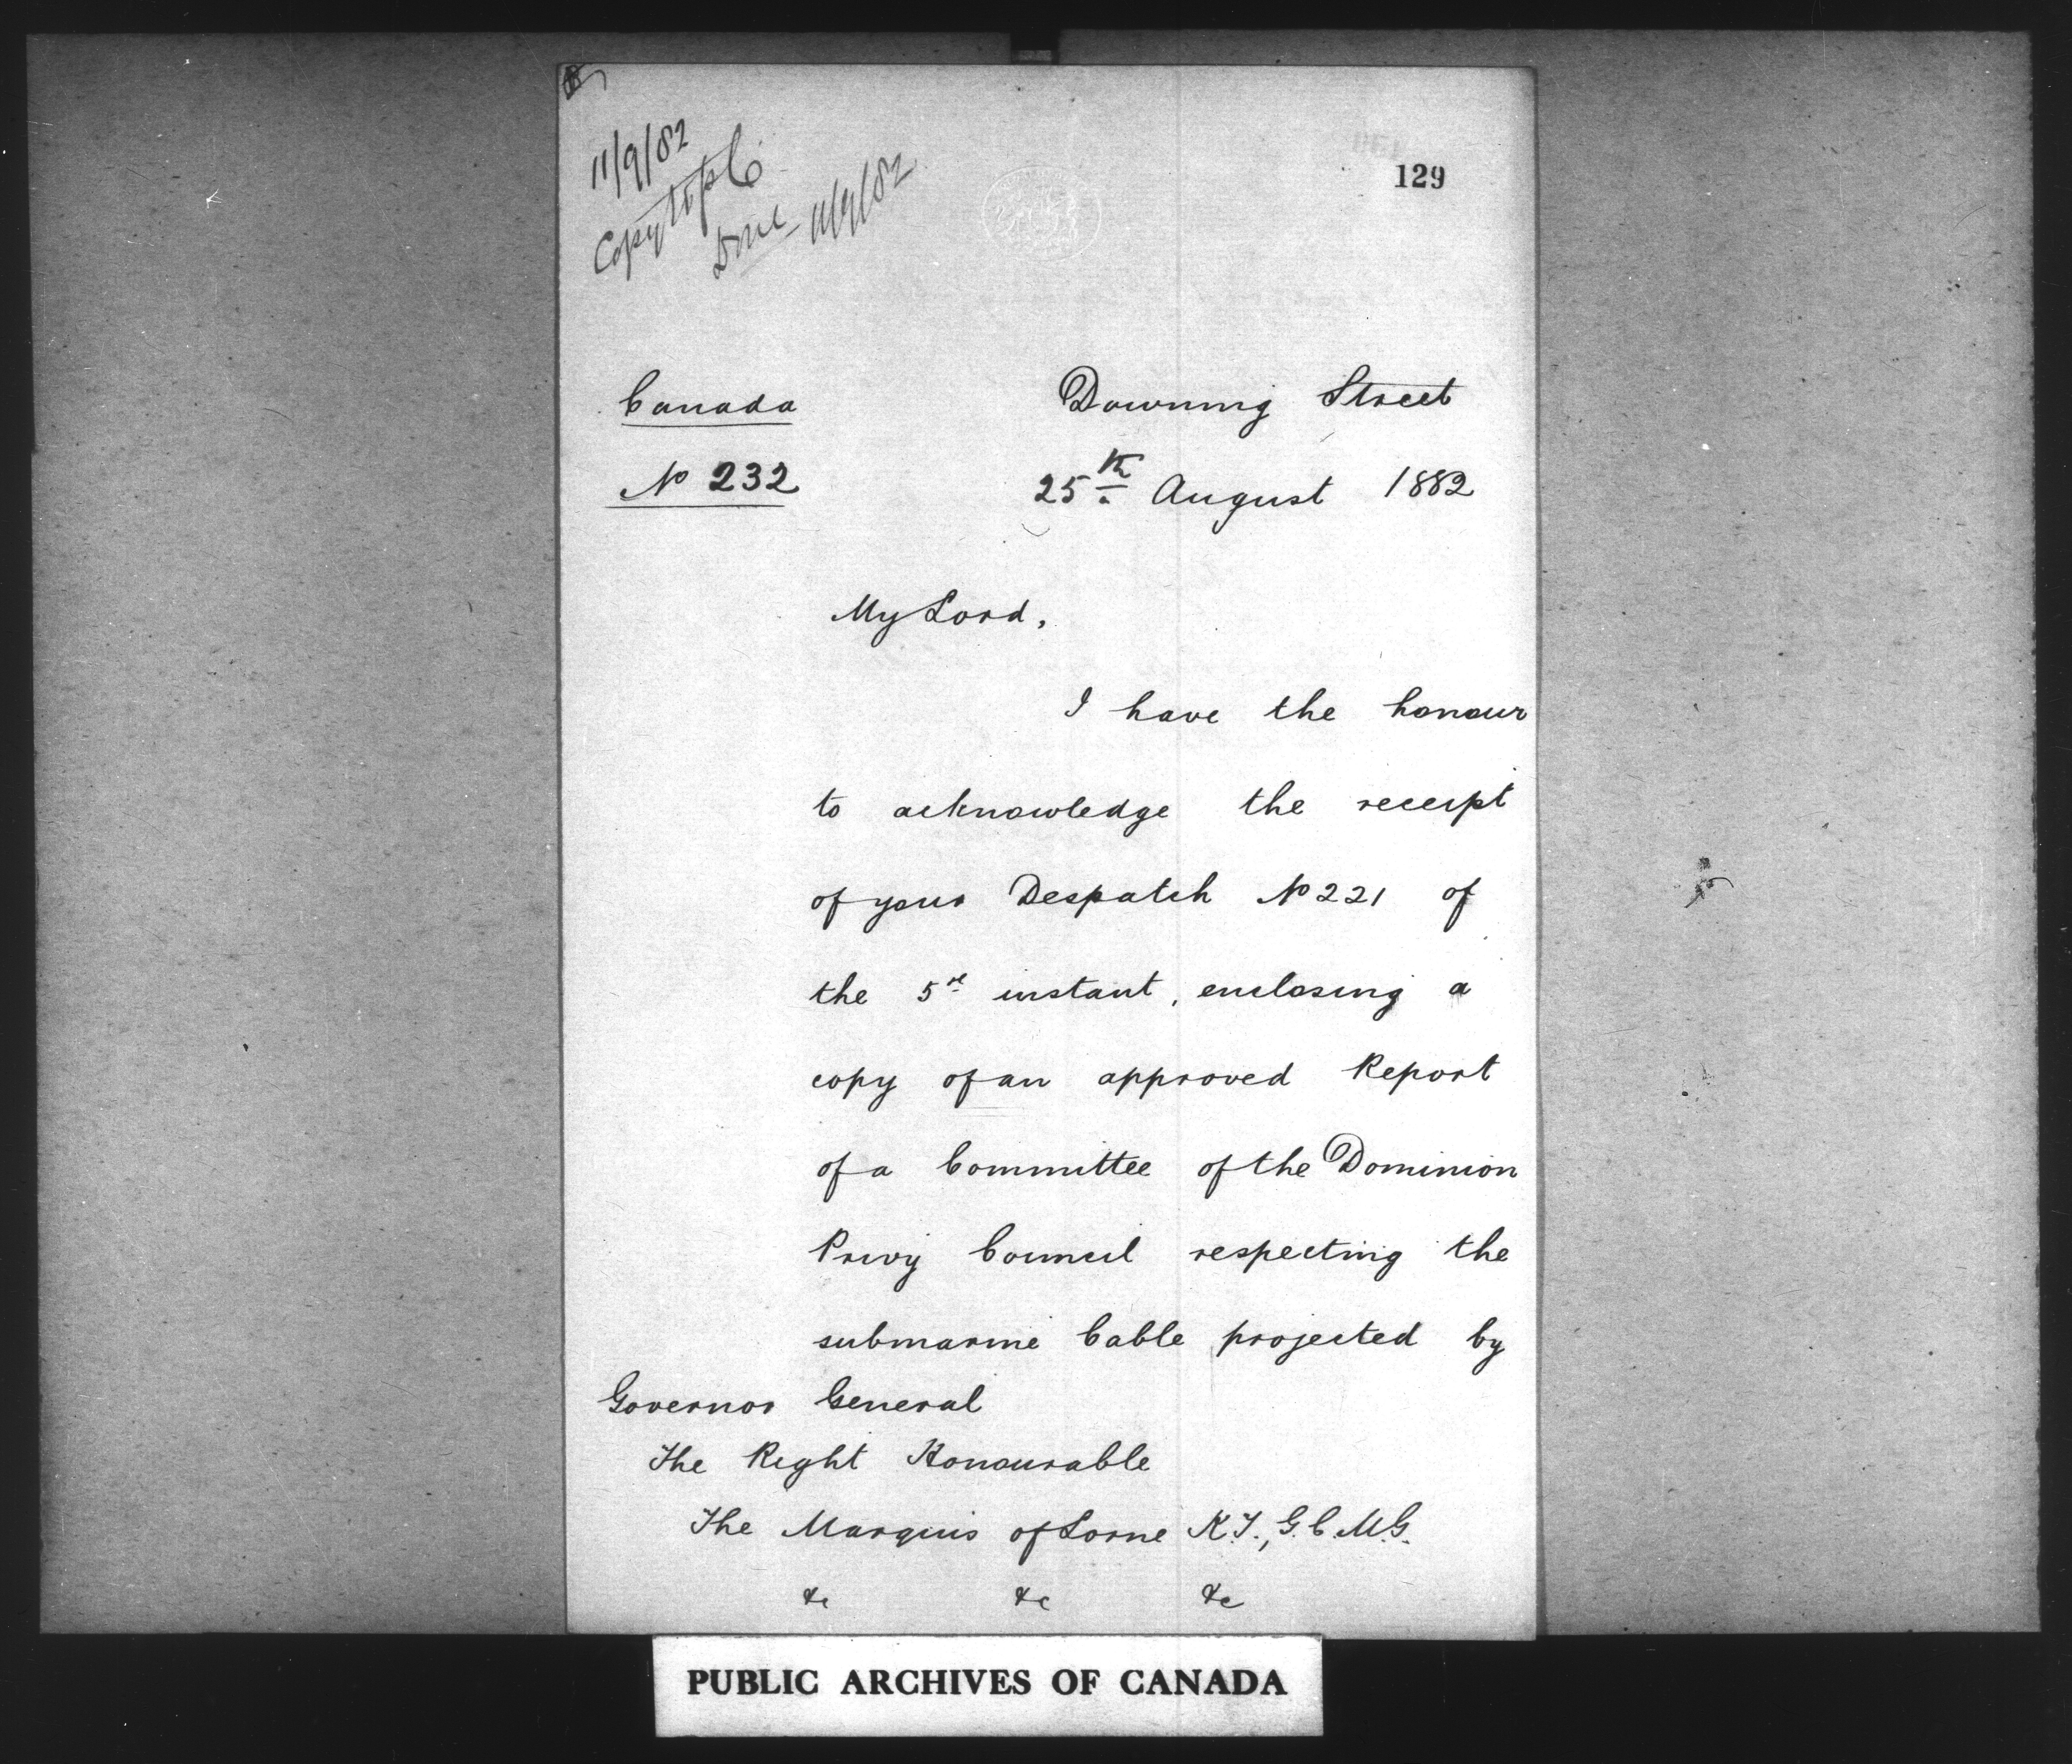 11/9/82
Copy to P.C.
Done 11/9/82
129
Canada
Downing Street
No 232
25th August 1882
My Lord,
I have the honour
to acknowledge the receipt
of your Despatch No 221 of
the 5th instant, enclosing a
copy of an approved Report
of a Committee of the Dominion
Privy Council respecting the
submarine Cable projected by
Governor General
The Right Honourable
The Marquis of Lorne K.T., G.C.M.G.
&c &c &c
PUBLIC ARCHIVES OF CANADA